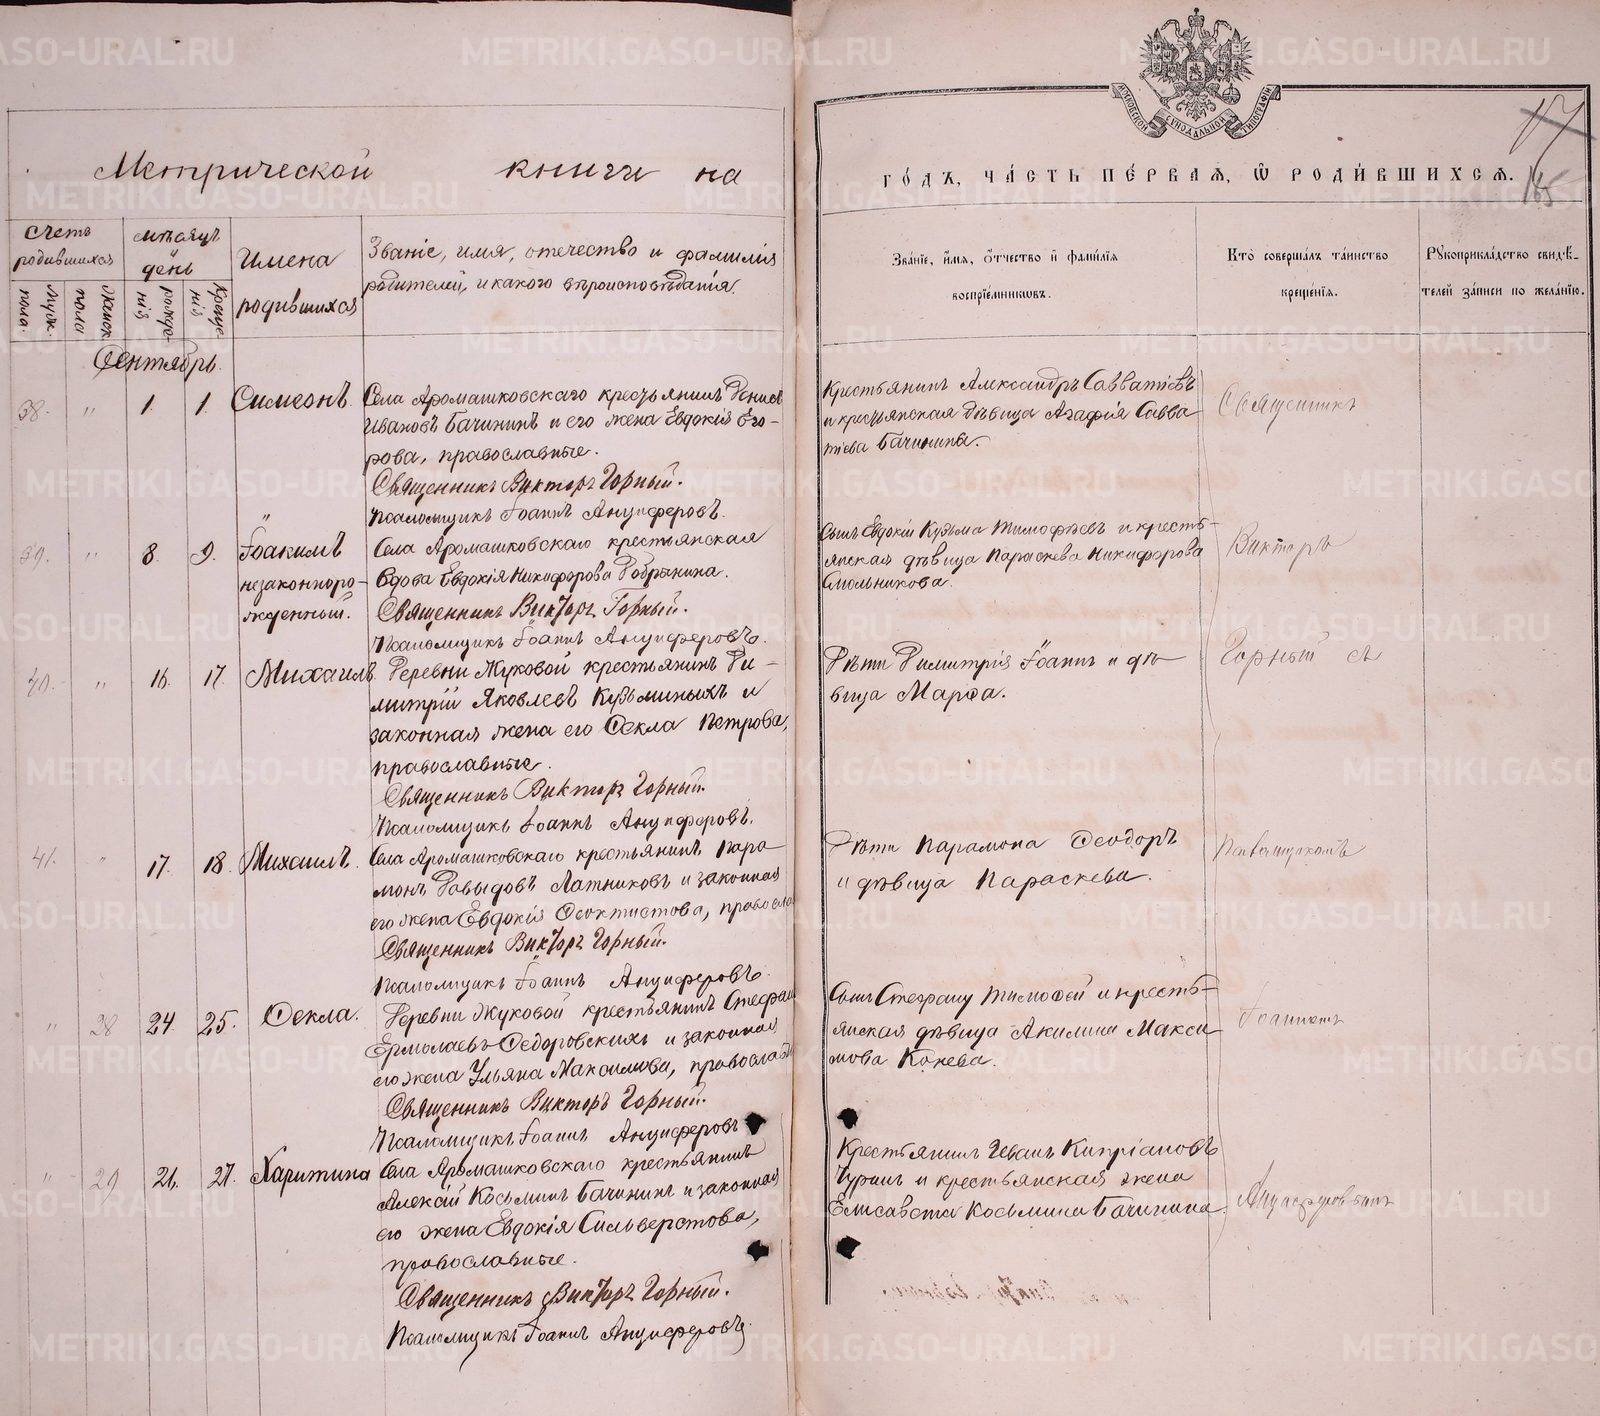 Метрической книги на
Счетъ родившихся
Мужск. пола.
Женск. пола
мѣсяцъ и день
рожденія
крещенія
Имена родившихся
Званіе, имя, отчество и фамилія
родителей, и какого вѣроисповѣданія
Сентябрь.
38. " 1 1 Симеонъ
Села Аромашковскаго крестьянинъ Денисъ
Ивановъ Бачининъ и его жена Евдокія Его-
рова, православные.
Священникъ Викторъ Горный.
Псаломщикъ Іоаннъ Анциферовъ.
39. " 8. 9. Іоакимъ
незаконноро-
жденный.
Села Аромашковскаго крестьянская
вдова Евдокія Никифорова Добрынина.
Священникъ Викторъ Горный.
Псаломщикъ Іоаннъ Анциферовъ.
40. " 16. 17. Михаилъ
Деревни Жуковой крестьянинъ Ди-
митрій Яковлевъ Кузьминыхъ и
законная жена его Ѳекла Петрова,
православные.
Священникъ Викторъ Горный.
Псаломщикъ Іоаннъ Анциферовъ.
41. " 17. 18. Михаилъ.
Села Аромашковскаго крестьянинъ Пара-
монъ Давыдовъ Латниковъ и законная
его жена Евдокія Ѳеоктистова, правосла
Священникъ Викторъ Горный.
Псаломщикъ Іоаннъ Анциферовъ.
" 28 24 25. Ѳекла.
Деревни Жуковой крестьянинъ Стефан
Ермолаевъ Ѳедоровскихъ и законная
его жена Ульяна Максимова, православн
Священникъ Викторъ Горный.
Псаломщикъ Іоаннъ Анциферовъ
" 29 26. 27. Харитина
Села Аромашковскаго крестьянинъ
Алексій Косьминъ Бачининъ и законная
его жена Евдокія Сильверстова,
православные.
Священникъ Викторъ Горный.
Псаломщикъ Іоаннъ Анциферовъ.
МОСКОВСКОЙ СѴНОДАЛЬНОЙ ТИПОГРАФІИ
17
165
го́дъ, ча́сть пе́рваѧ, ѡ҆ роди́вшихсѧ.
Зва́ніе, и҆́мя, ѻ҆́тчество и҆ фами́лїя
воспрїе́мникѡвъ.
Кто̀ соверша́лъ та́инство
креще́нїѧ.
Рꙋкоприкла́дство свидѣ́-
телей за́писи по жела́нїю.
Крестьянинъ Александръ Савватіевъ
и крестьянская дѣвица Агафія Савва-
тіева Бачинина.
Сынъ Евдокіи Кузьма Тимофѣевъ и кресть-
янская дѣвица Параскева Никифорова
Смольникова.
Дѣти Димитрія Іоаннъ и дѣ-
вица Марѳа.
Дѣти Парамона Ѳеодоръ
и дѣвица Параскева.
Сынъ Стефану Тимоѳей и кресть-
янская дѣвица Акилина Макси-
мова Конева.
Крестьянинъ Иванъ Кипріановъ
Чуринъ и крестьянская жена
Елисавета Косьмина Бачинина
Священникъ
Викторъ
Горный съ
Псаломщикомъ
Іоанномъ
Анциферовымъ
METRIKI.GASO-URAL.RU